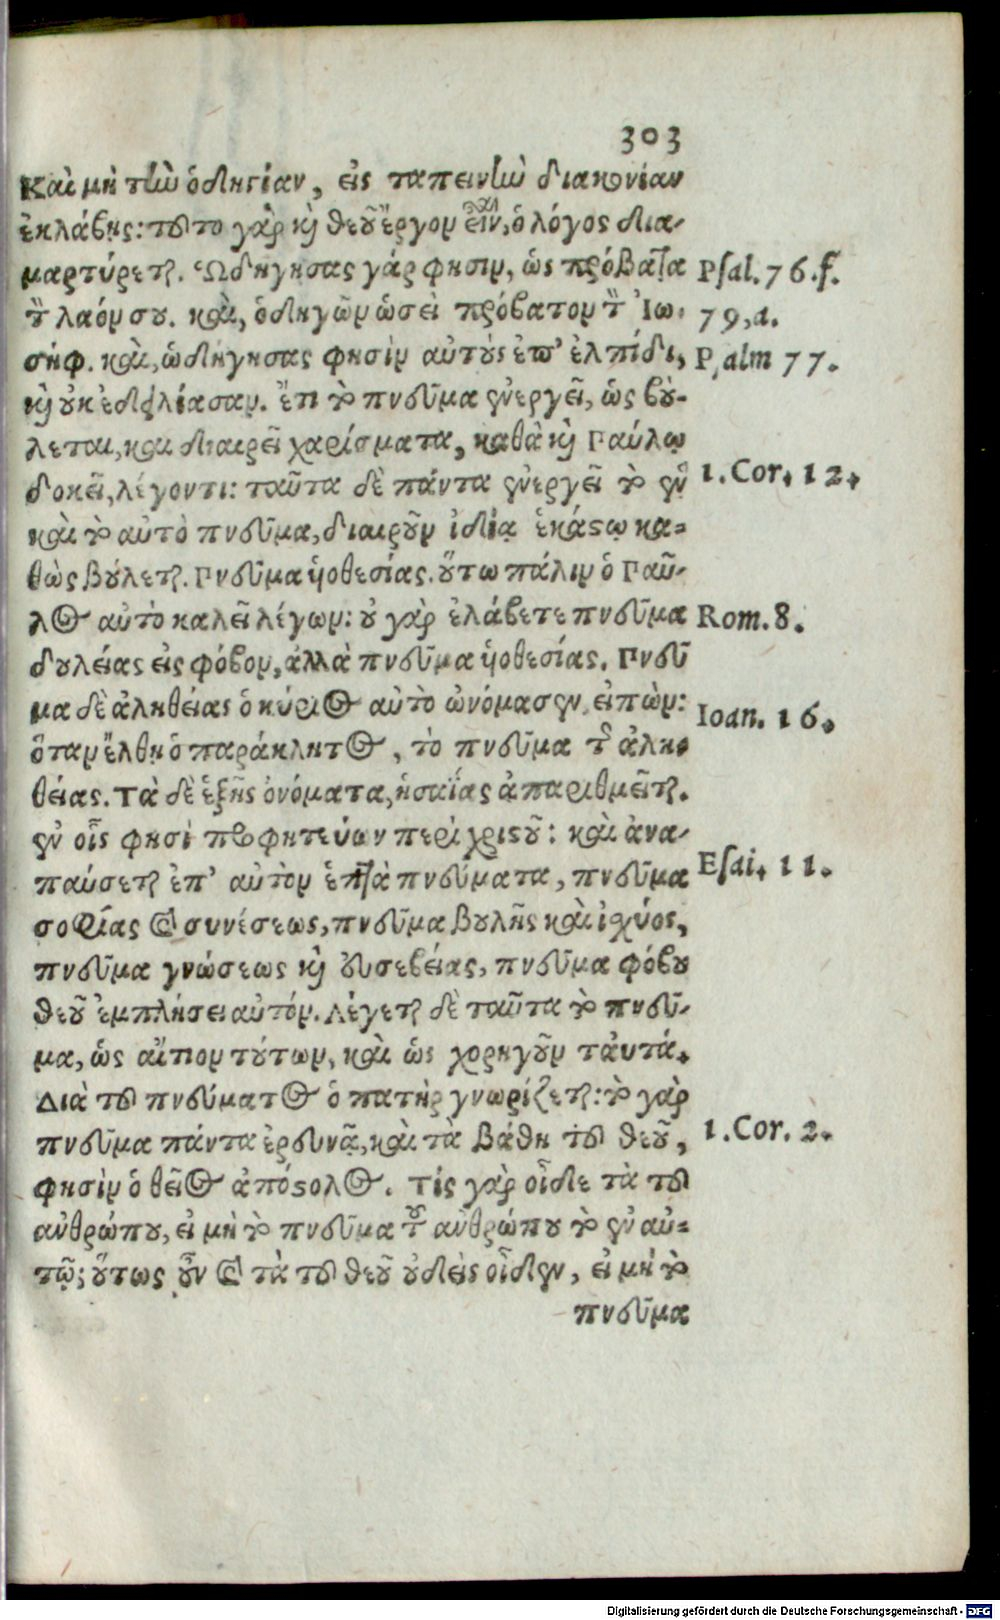 303
Καὶ μὴ τὴν ὁδηγίαν, εἰς ταπεινὴν διακονίαν
ἐκλάβῃς: τοῦτο γὰρ καὶ θεοῦ ἔργον εἶναι, ὁ λόγος δια-
μαρτύρεται. Ὡδήγησας γάρ φησιν, ὡς πρόβατα
τὸν λαόν σου. καὶ, ὁδηγῶν ὡσεὶ πρόβατον τὸν Ἰω-
σήφ. καὶ, ὡδήγησας φησὶν αὐτοὺς ἐπ' ἐλπίδι,
καὶ οὐκ ἐδειλίασαν. ἔτι τὸ πνεῦμα ἐνεργεῖ, ὡς βού-
λεται, καὶ διαιρεῖ χαρίσματα, καθὰ καὶ Παύλῳ
δοκεῖ, λέγοντι: ταῦτα δὲ πάντα ἐνεργεῖ τὸ ἓν
καὶ τὸ αὐτὸ πνεῦμα, διαιροῦν ἰδίᾳ ἑκάστῳ κα-
θὼς βούλεται. Πνεῦμα υἱοθεσίας. οὕτω πάλιν ὁ Παῦ-
λος αὐτὸ καλεῖ λέγων: οὐ γὰρ ἐλάβετε πνεῦμα
δουλείας εἰς φόβον, ἀλλὰ πνεῦμα υἱοθεσίας. Πνεῦ
μα δὲ ἀληθείας ὁ κύριος αὐτὸ ὠνόμασεν, εἰπών:
ὅταν ἔλθῃ ὁ παράκλητος, τὸ πνεῦμα τῆς ἀλη-
θείας. Τὰ δὲ ἑξῆς ὀνόματα, ἡσαΐας ἀπαριθμεῖται.
ἐν οἷς φησὶ προφητεύων περὶ χριστοῦ: καὶ ἀνα-
παύσεται ἐπ' αὐτὸν ἑπτὰ πνεύματα, πνεῦμα
σοφίας καὶ συνέσεως, πνεῦμα βουλῆς καὶ ἰχύος,
πνεῦμα γνώσεως καὶ εὐσεβείας, πνεῦμα φόβου
θεοῦ ἐμπλήσει αὐτόν. Λέγεται δὲ ταῦτα τὸ πνεῦ-
μα, ὡς αἴτιον τούτων, καὶ ὡς χορηγοῦν ταυτά.
Διὰ τοῦ πνεύματος ὁ πατὴρ γνωρίζεται: τὸ γὰρ
πνεῦμα πάντα ἐρευνᾷ, καὶ τὰ βάθη τοῦ θεοῦ,
φησὶν ὁ θεῖος ἀπόστολος. Τίς γὰρ οἶδε τὰ τοῦ
ἀνθρώπου, εἰ μὴ τὸ πνεῦμα τοῦ ἀνθρώπου τὸ ἐν αὐ-
τῷ; οὕτως οὖν καὶ τὰ τοῦ θεοῦ οὐδεὶς οἶδεν, εἰ μὴ τὸ
πνεῦμα
Psal. 76. f.
79, a.
Psalm 77.
1. Cor. 12.
Rom. 8.
Ioan. 16.
Esai. 11.
1. Cor. 2.
Digitalisierung gefördert durch die Deutsche Forschungsgemeinschaft - DFG